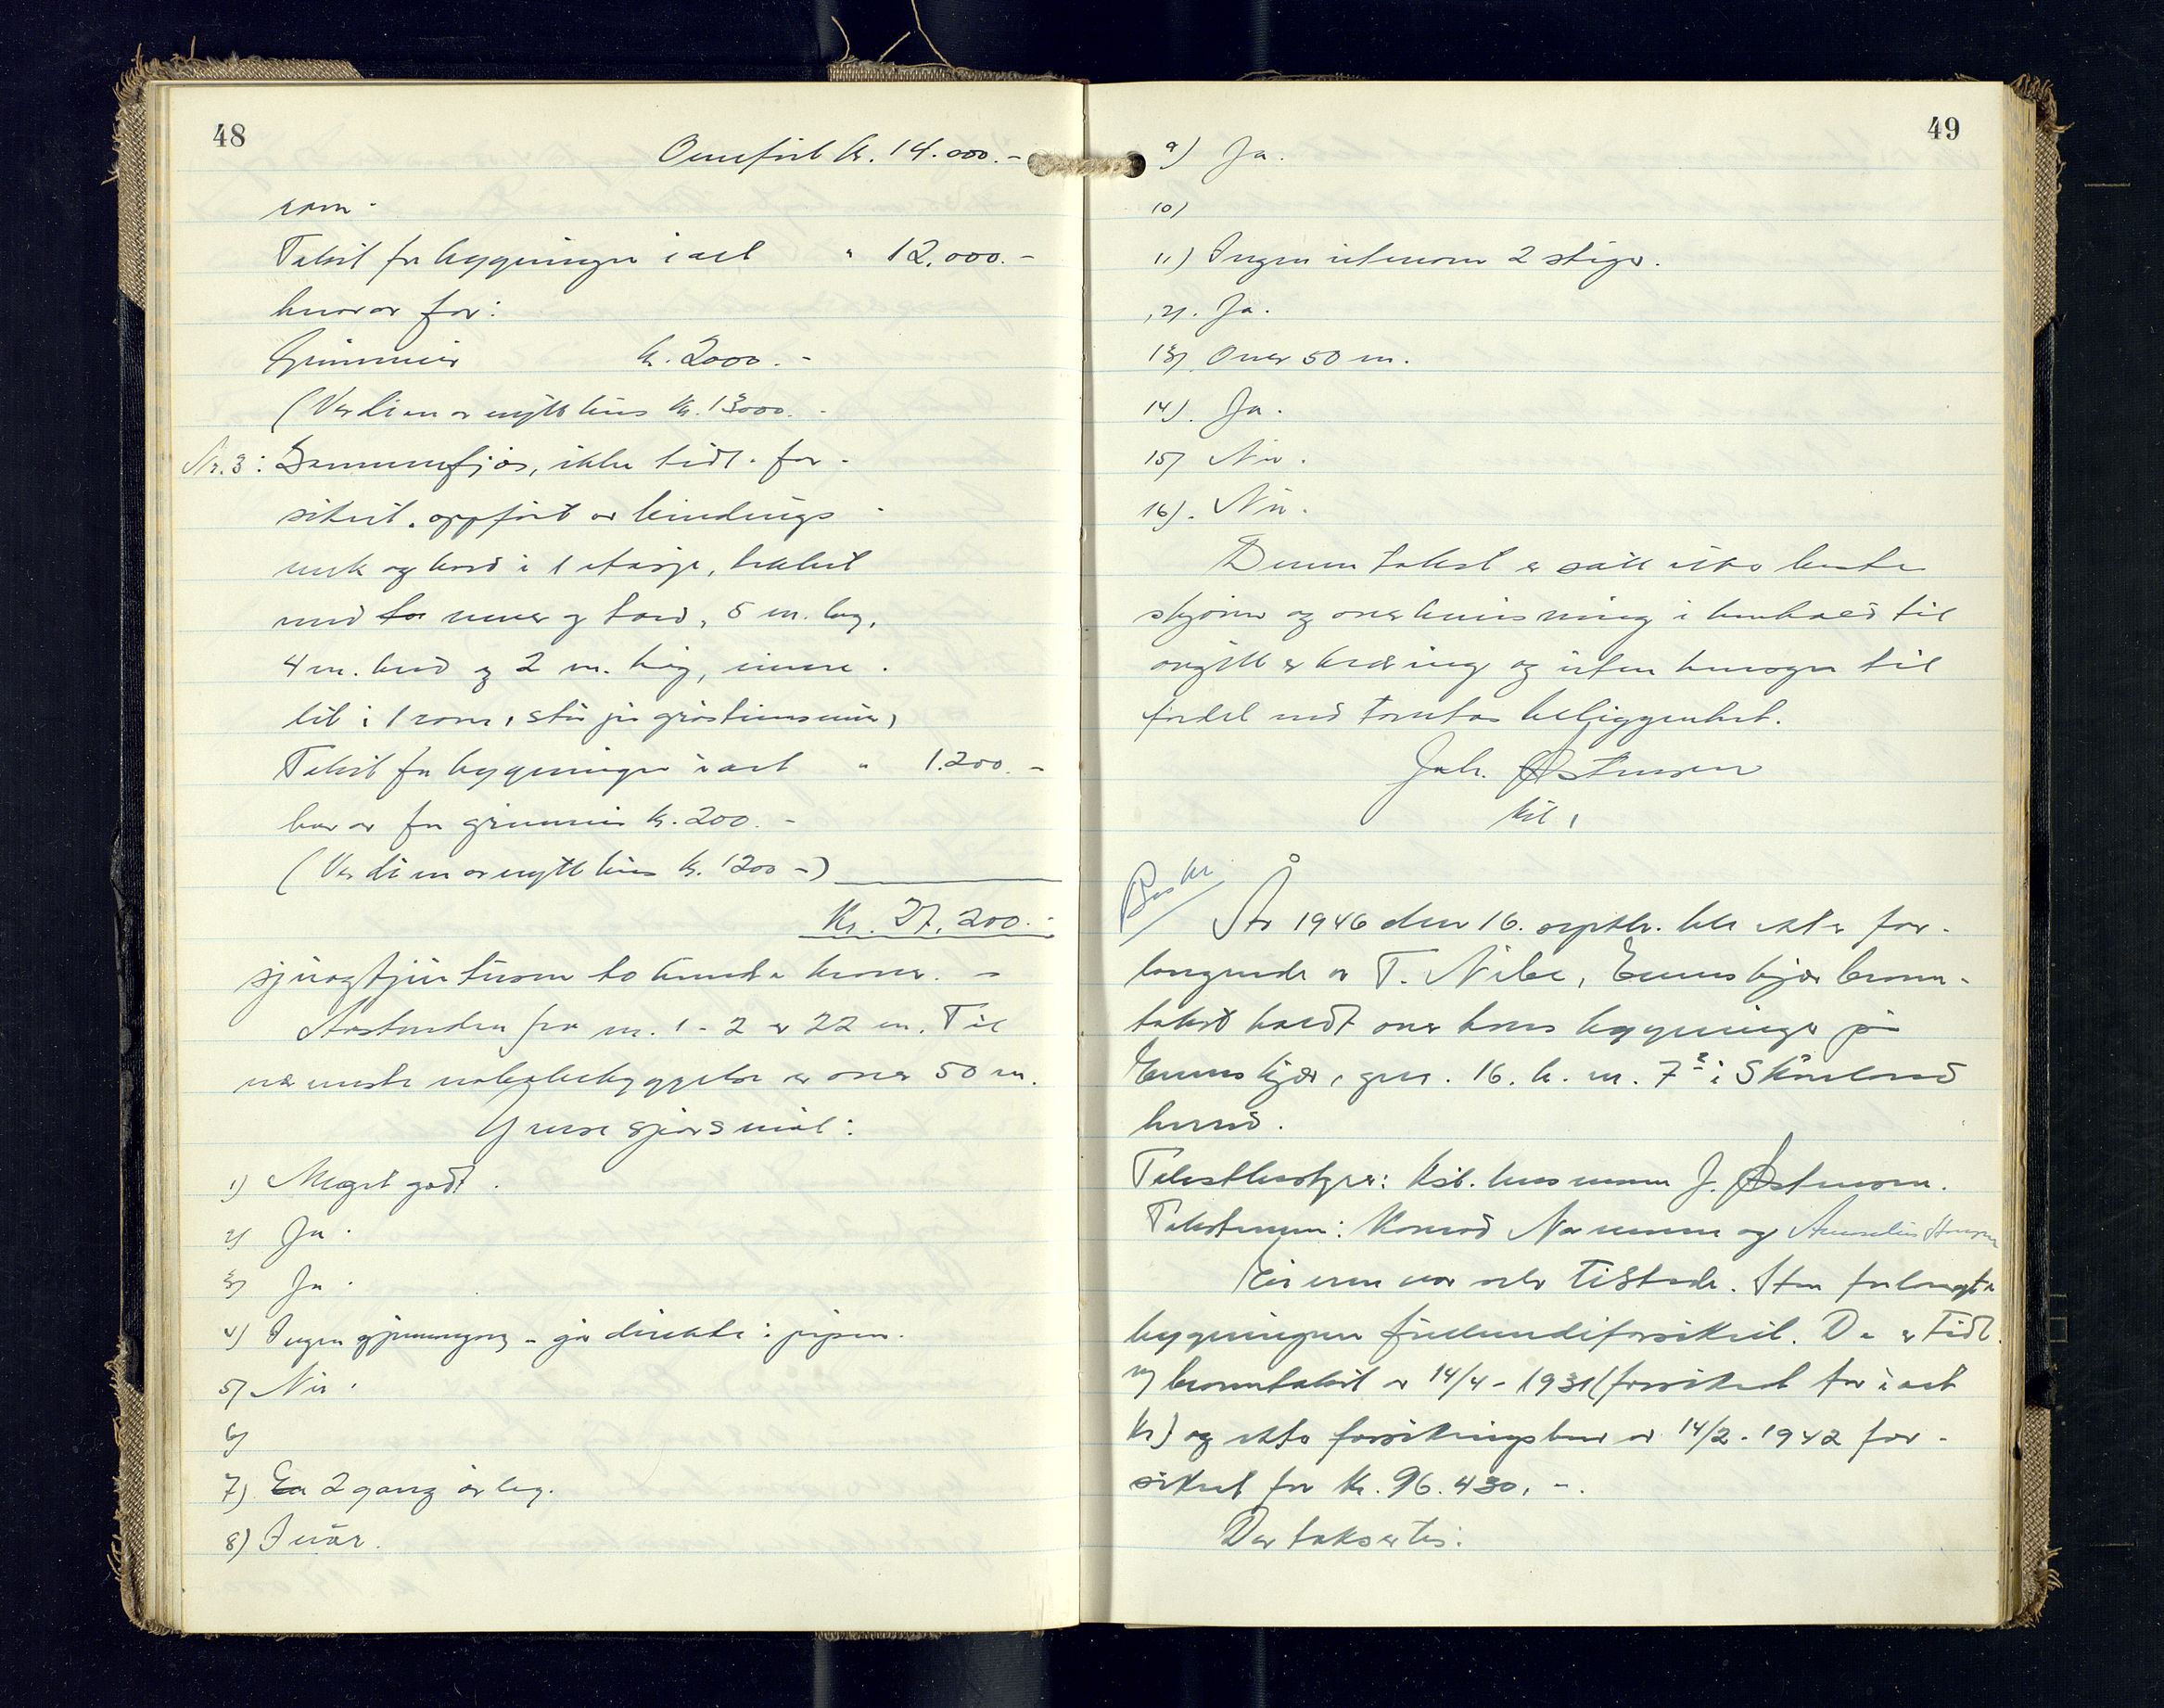 48
Overført kr. 14.000.-
rom.
Takst for bygningen i alt " 12.000.-
hvorav for:
Grunnmur kr. 2000.-
(Verdien av nytt hus kr. 13000.-
Nr. 3: Sommerfjøs, ikke tidl. for-
sikret, oppført av bindings-
verk og bord i 1 etasje, tekket
med never og torv, 5 m. lang,
4 m. bred og 2 m. høg, innre-
tet i 1 rom, står på gråsteinsmur,
Takst for bygningen i alt " 1.200.-
hvorav for grunnmur kr. 200.-
(Verdien av nytt hus kr. 1200-)
Kr. 27.200.-
sjuogtjue tusen to hundre kroner.-
Avstanden fra nr. 1-2 er 22 m. Til
nærmeste nabobebyggelse er over 50 m.
spørsmål:
1) Meget godt.
2) Ja.
3) Ja.
4) Ingen - går direkte i pipen.
5) Nei.
6)
7) 2 gang årleg.
8) I uår.
49
9) Ja.
10)
11) Ingen utenom 2 stiger.
12). Ja.
13) Over 50 m.
14). Ja.
15) Nei.
16). Nei.
Denne takst er satt etter beste
skjønn og overbevisning i henhold til
avgitt erklæring og uten hensyn til
fordel ved tomtas beliggenhet.
Joh. Østmoen
År 1946 den 16. septbr. ble etter for-
langende av T. Nibe, Evenskjær brann-
takst holdt over hans bygninger på
Evenskjær, gnr. 16. b. nr. 7 i Skånland
herred.
Takstbestyrer: J. Østmoen.
Takstmenn: Konrad og
Eieren var selv tilstede. Han forlangte
bygningene fullverdiforsikret. De er tidl.
ved branntakst av 14/4-1931 (forsikret for i alt
kr) og etter forsikringsbrev av 14/2-1942 for-
sikret for kr. 96.430.-.
Der taksertes: